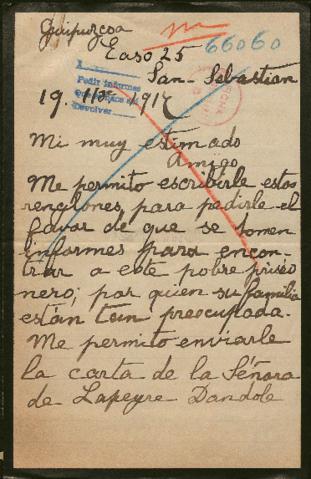 Guipuzcoa
66060
Easo 25
San-Sebastian
Pedir informes
Devolver
19. 1917
Mi muy estimado
Amigo
Me permito escribirle estos
renglones, para pedirle el
favor de que se tomen
informes para encon-
trar a este pobre prisio
nero; por quien su familia
están tan preocupada.
Me permito enviarle
la carta de la Señora
de Lapeyre Dandole